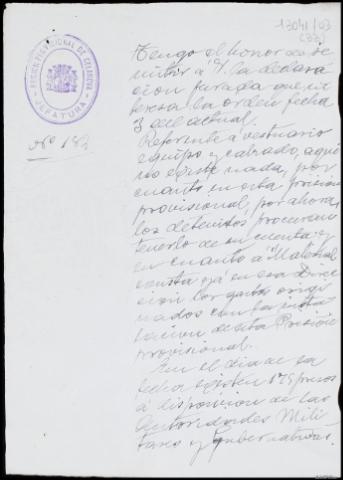 13041/03
(33)
PRISION PROVISIONAL DE CELANOVA
JEFATURA
nº 182
Tengo el honor de re
mitir á V. la declara
cion jurada que in
teresa la orden fecha
3 del actual.
Referente á vestuario
equipo y calzado, aqui
no existe nada, por
cuanto en esta prision
provisional, por ahora,
los detenidos procuran
tenerlo de su cuenta; y
en cuanto á "Material
consta yá en esa Direc
cion los gastos origi
nados con la insta
lacion de esta Prision
provisional.
En el dia de la
fecha existen 175 presos
á disposicion de las
Autoridades Mili
tares y gubernativas.